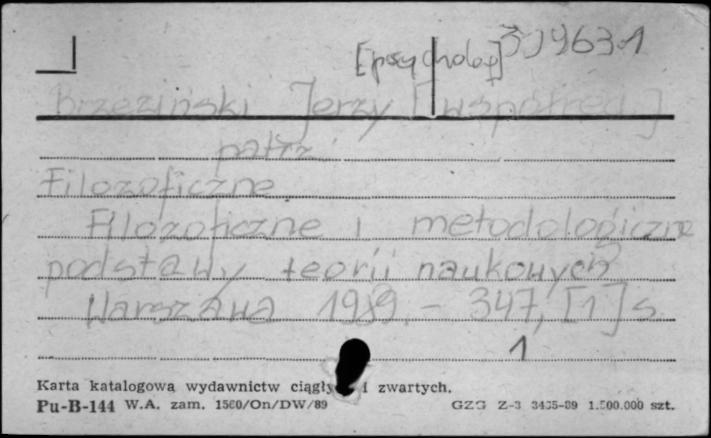 [psycholog] 319631
Brzeziński Jerzy [współred.]
patrz
Filozoficzne
Filozoficzne i metodologiczne
podstawy teorii naukowych
Warszawa 1989. - 347, [1] s.
1
Karta katalogowa wydawnictw i zwartych.
Pu-B-144 W.A. zam. 1560/On/DW/89 GZG Z-3 3435-89 1.500.000 szt.